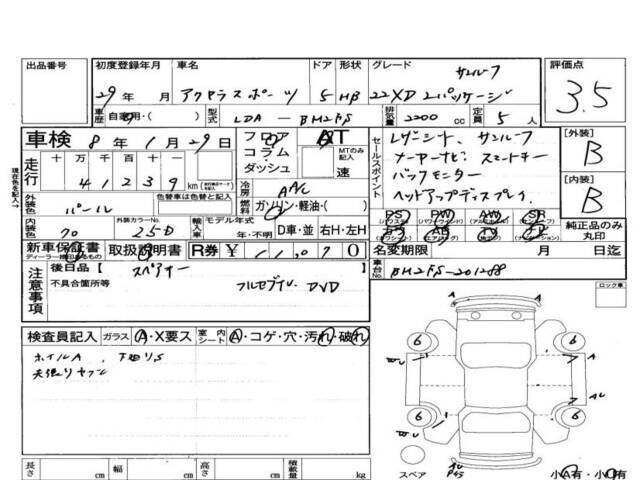 出品番号 初度登録年月 車名 ドア 形状 グレード 評価点
サンルーフ
29年 月 アクセラスポーツ 5 HB 22XD Lパッケージ 3.5
車歴 自家用・( ) 型式 LDA-BM2FS 排気量 2200 cc 定員 5 人
車検 8年 1月 29日 フロア コラム・ダッシュ AT MTのみ記入 速
セールスポイント レザーシート、サンルーフ [外装] B
走行 十万 万 千 百 十 一
4 1 2 3 9 km
メーカーナビ、スマートキー
バックモニター [内装] B
ヘッドアップディスプレイ
現在色を記入→
外装色 パール 色替車は色替と記入 冷房 A/C
燃料 ガソリン・軽油・( )
内装色 外装カラーNo. 25D 輸入車 モデル年式 年・不明 D車・並 右H・左H
PS PW AW SR
純正品のみ丸印
新車保証書 取扱説明書 R券 ¥ 0
ディーラー捺印あるもの
名変期限 月 日迄
注意事項 後日品[ スペアキー ] 車台No. BM2FS-201288
不具合箇所等 フルセグTV、DVD
ロック車
検査員記入 ガラス A・X要ス 室内シート A・コゲ・穴・汚れ・破れ
ホイルA、下廻りS
6 6
6 6
A A
長さ cm 幅 cm 高さ cm 積載量 kg
スペア 小A有・小U有